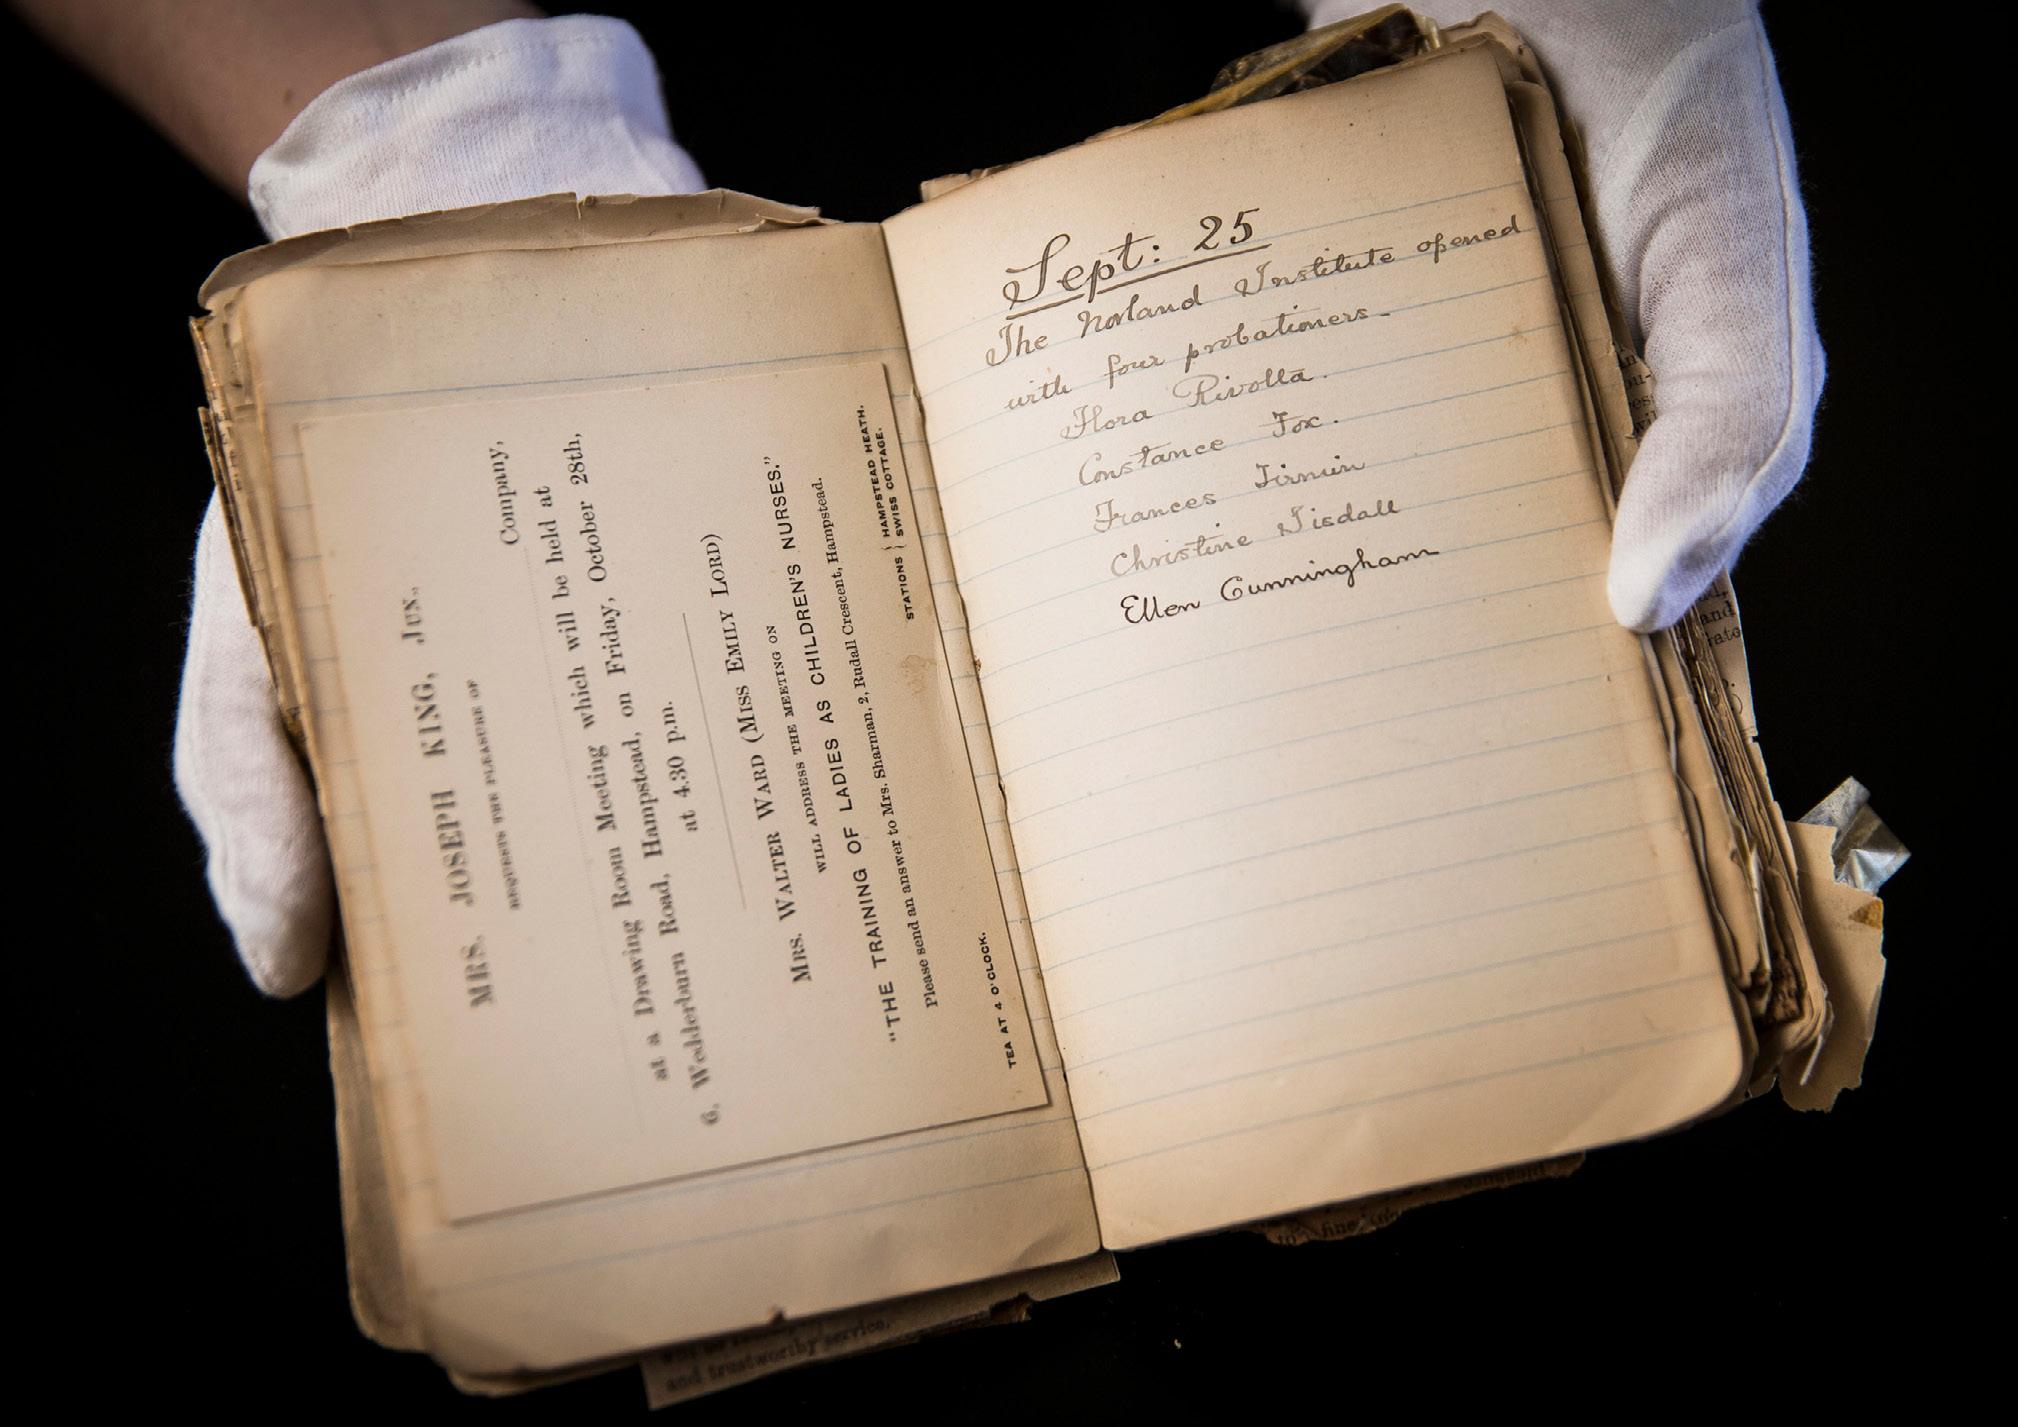 MRS. JOSEPH KING, JUN.,
REQUESTS THE PLEASURE OF
Company,
at a Drawing Room Meeting which will be held at
6, Wedderburn Road, Hampstead, on Friday, October 28th,
at 4.30 p.m.
MRS. WALTER WARD (MISS EMILY LORD)
WILL ADDRESS THE MEETING ON
"THE TRAINING OF LADIES AS CHILDREN'S NURSES."
Please send an answer to Mrs. Sharman, 2, Rudall Crescent, Hampstead.
TEA AT 4 O'CLOCK.
STATIONS { HAMPSTEAD HEATH.
SWISS COTTAGE.
Sept: 25
The Norland Institute opened
with four probationers.
Flora Rivolta.
Constance Fox.
Frances Firmin
Christine Tisdall
Ellen Cunningham
and trustworthy service.